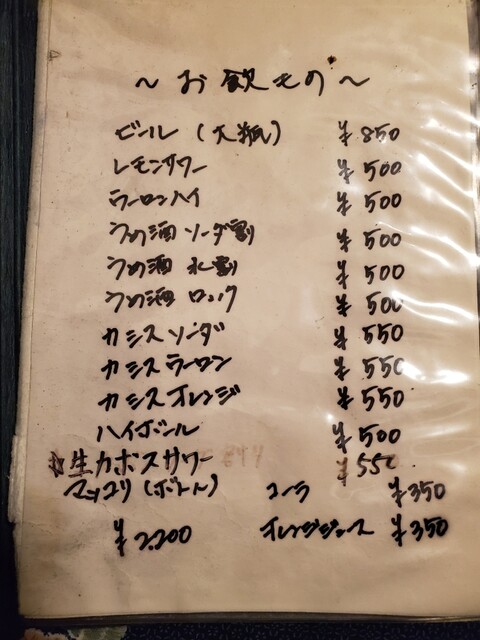 ～お飲もの～
ビール(大瓶) ¥850
レモンサワー ¥500
ウーロンハイ ¥500
うめ酒 ソーダ割 ¥500
うめ酒 水割 ¥500
うめ酒 ロック ¥500
カシスソーダ ¥550
カシスウーロン ¥550
カシスオレンジ ¥550
ハイボール ¥500
☆生カボスサワー ¥550
マッコリ(ボトル) コーラ ¥350
¥2.200 オレンジジュース ¥350